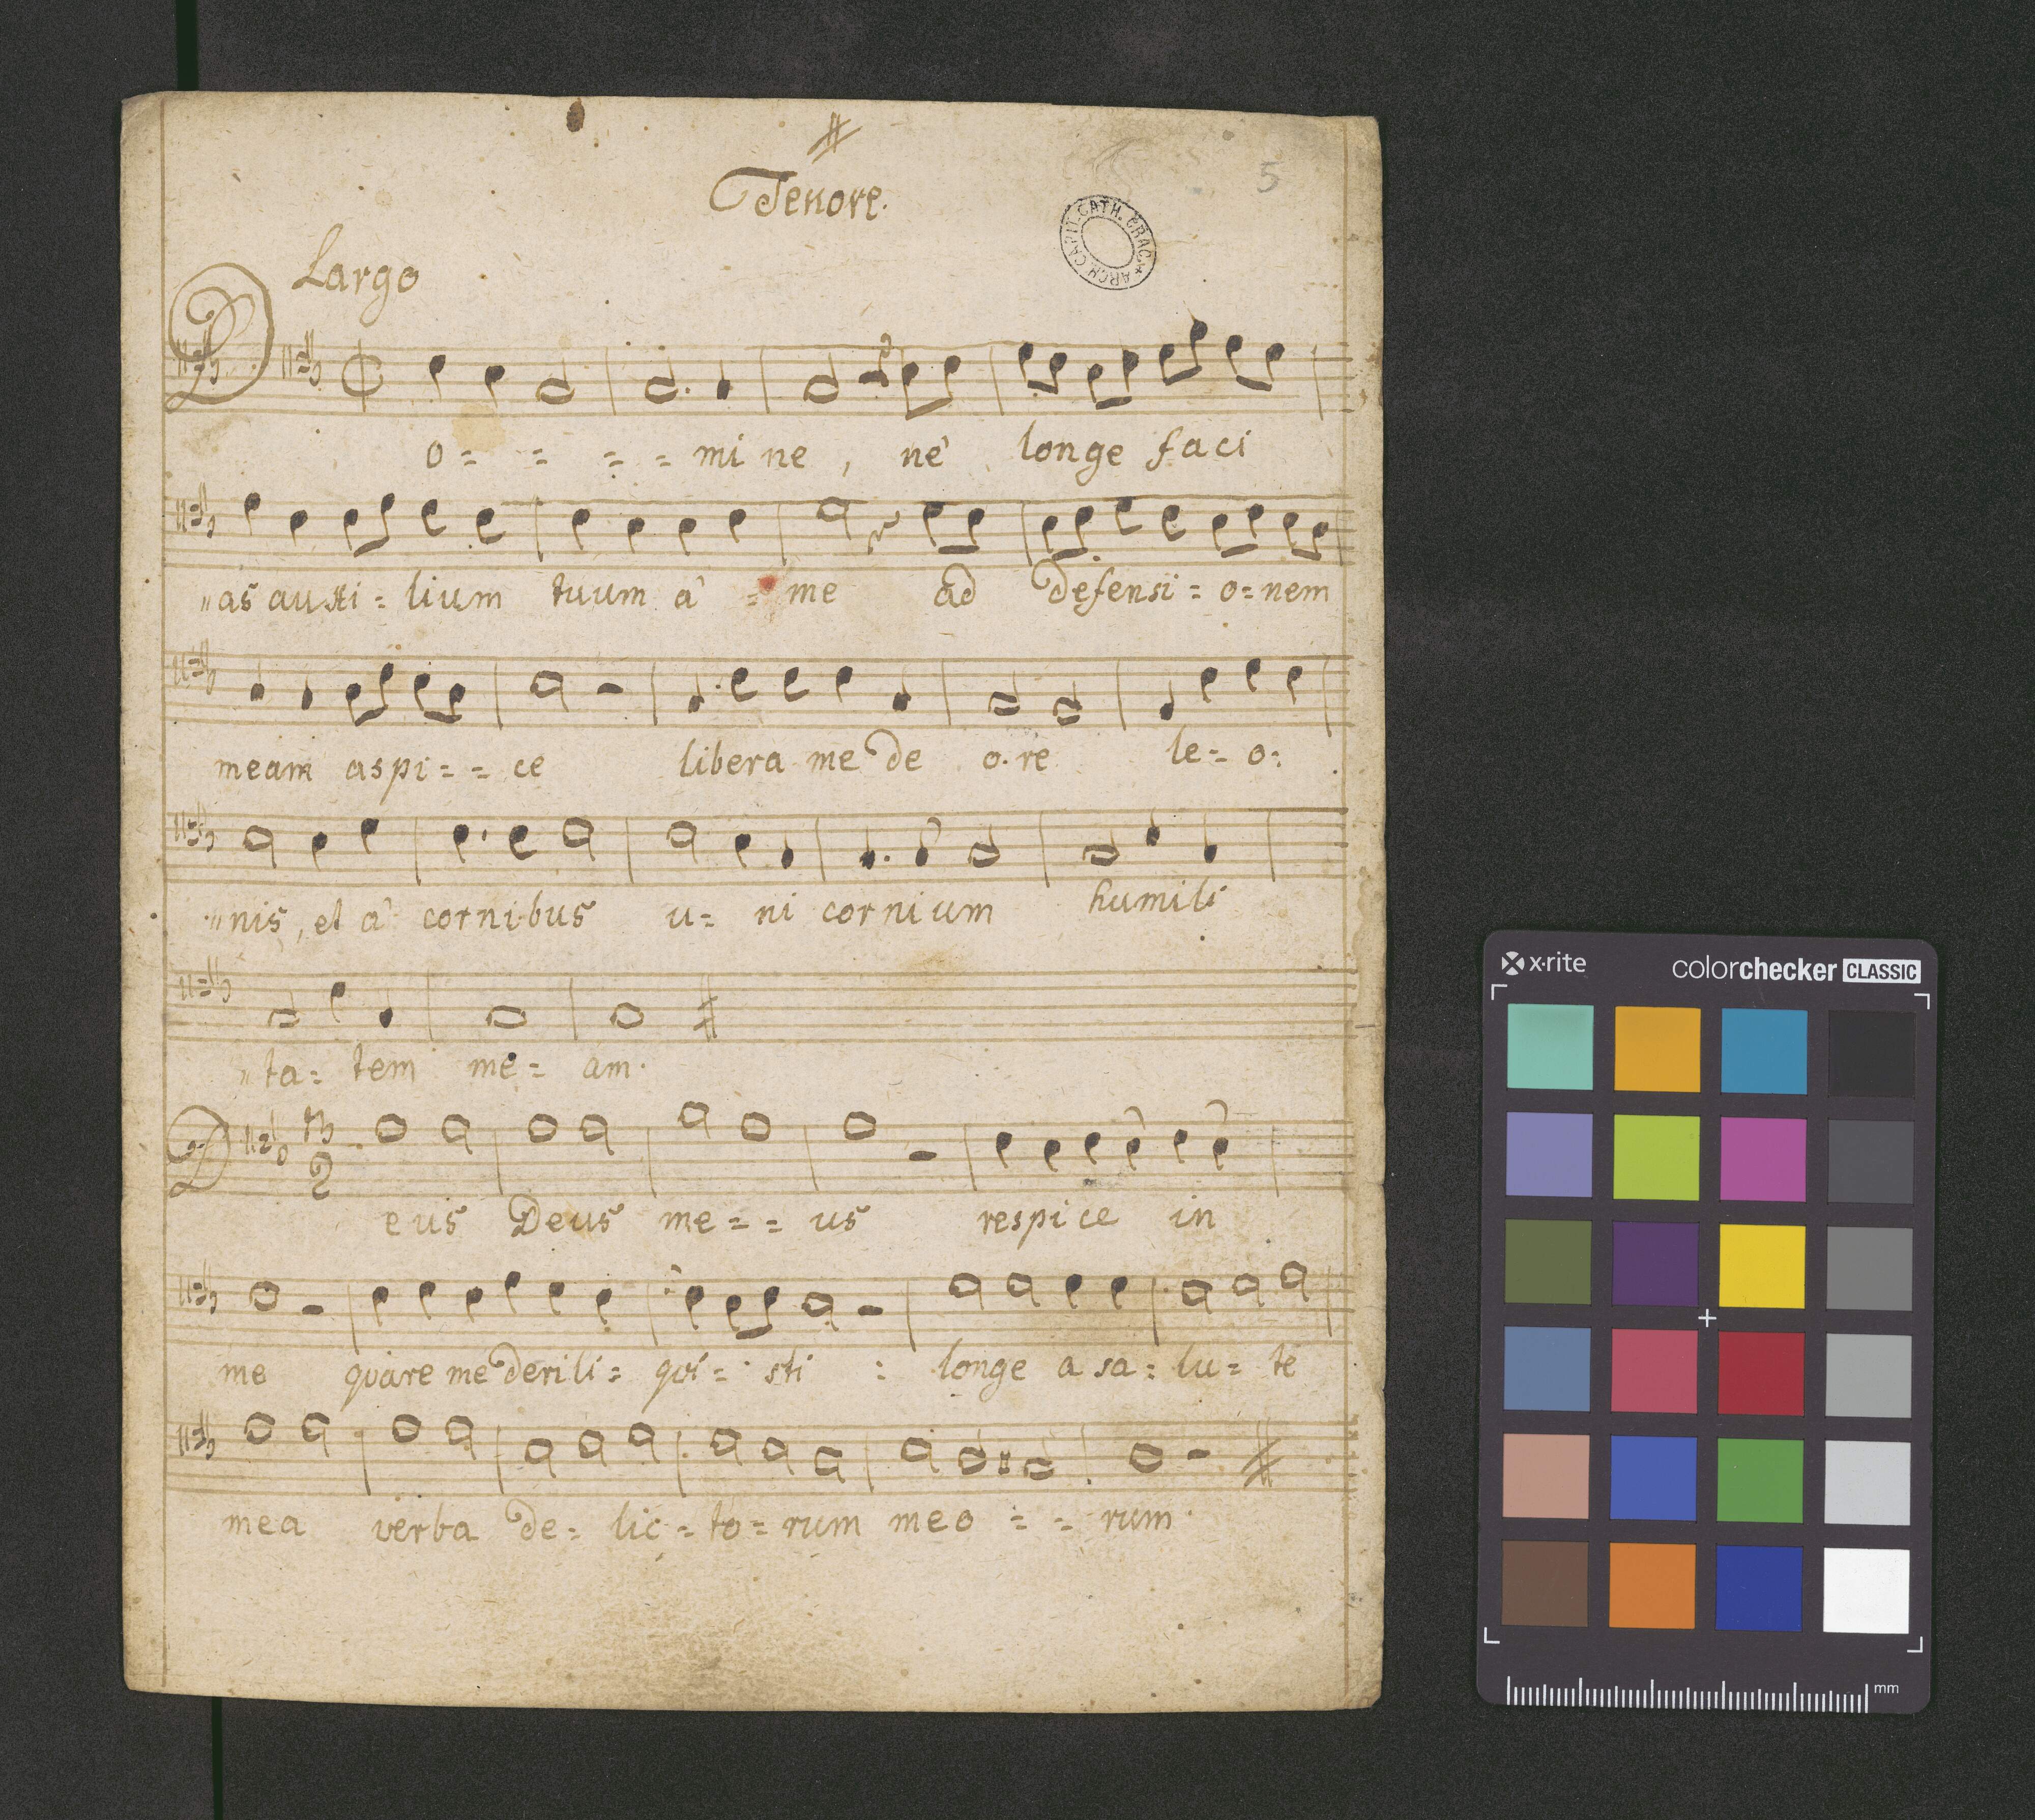 Tenore.
5
ARCH. CAPIT. CATH. CRAC.
Largo
Do = = = = mi ne , nè longe faci
"as auxi = lium tuum à = me ad defensi = o = nem
meam aspi = = ce libera me de o. re le = o:
"nis, et à cornibus u = ni cornium humili
"ta = tem me = am.
3
2
Deus Deus me = = us respice in
me quare me derili = qui = sti : longe a sa = lu = te
mea verba de = lic = to = rum meo = = rum.
x-rite
colorchecker CLASSIC
mm